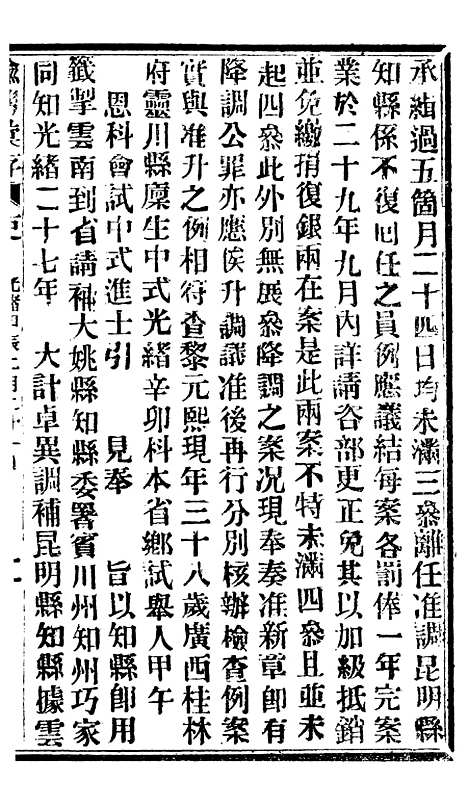 承緝過五箇月二十四日均未滿三叅離任准調昆明縣
知縣係不復回任之員例應議結每案各罰俸一年完案
業於二十九年九月內詳請咨部更正免其以加級抵銷
並免繳捐復銀兩在案是此兩案不特未滿四叅且並未
起四叅此外別無展叅降調之案况現奉奏准新章卽有
降調公罪亦應俟升調議准後再行分別核辦檢查例案
實與准升之例相符查黎元熙現年三十八歲廣西桂林
府靈川縣廩生中式光緒辛卯科本省鄉試舉人甲午
恩科會試中式進士引 見奉 旨以知縣卽用
籤掣雲南到省請補大姚縣知縣委署賓川州知州巧家
同知光緒二十七年 大計卓異調補昆明縣知縣據雲
光緒甲辰